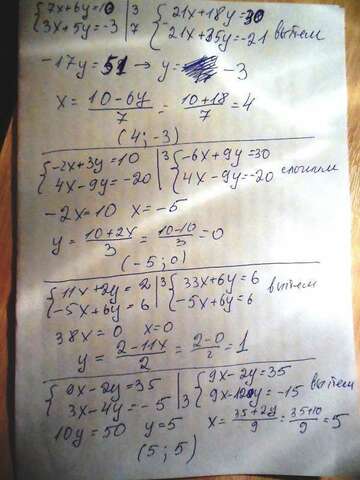 {7x+6y=10 | 3 {21x+18y=30
{3x+5y=-3 | 7 {21x+35y=-21 вычтем
-17y=51 → y= -3
x = 10-6y/7 = 10+18/7 = 4
(4; -3)
{-2x+3y=10 | 3 {-6x+9y=30
{4x-9y=-20 {4x-9y=-20 сложим
-2x=10 x=-5
y = 10+2x/3 = 10-10/3 = 0
(-5; 0)
{11x+2y=2 | 3 {33x+6y=6
{-5x+6y=6 {-5x+6y=6 вычтем
38x=0 x=0
y = 2-11x/2 = 2-0/2 = 1
{9x-2y=35 {9x-2y=35
{3x-4y=-5 | 3 {9x-12y=-15 вычтем
10y=50 y=5 x = 35+2y/9 = 35+10/9 = 5
(5; 5)